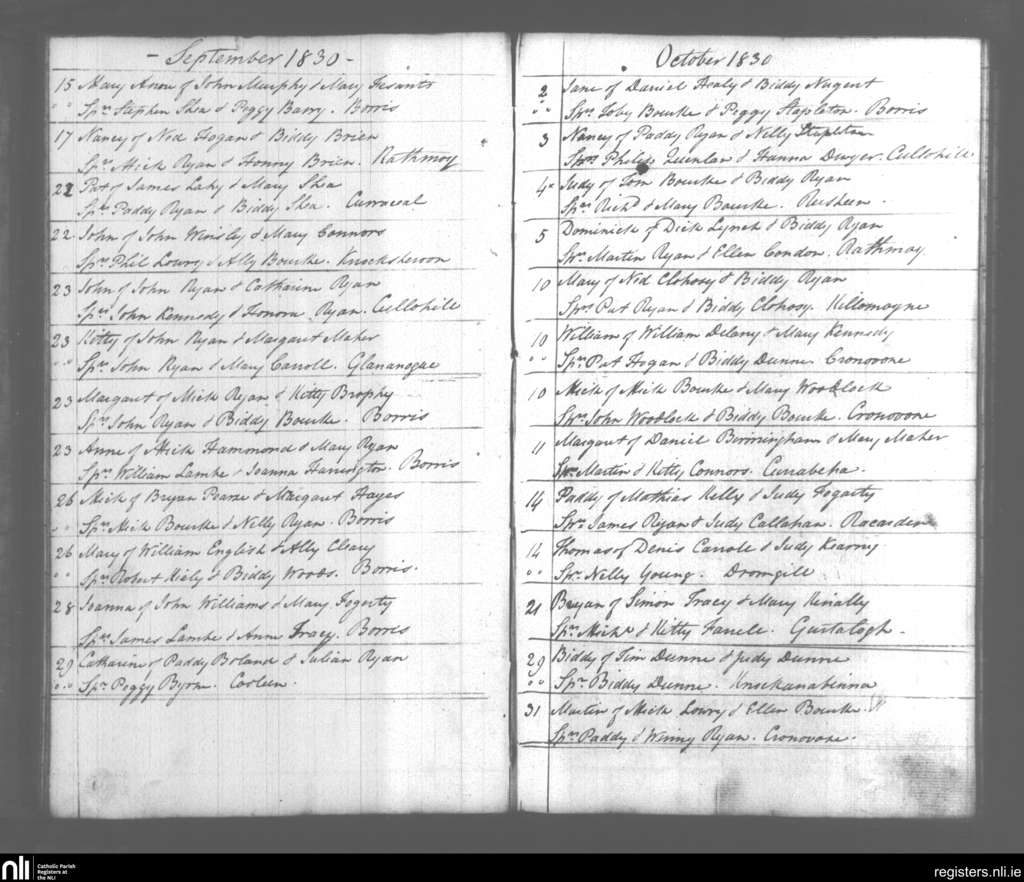 - September 1830 -
15 Mary Anne of John Murphy & Mary
" " Sprs Stephen Shea & Peggy Barry. Borris
17 Nancy of Ned Hogan & Biddy Brien
Sprs Mick Ryan & Honny Brien. Rathmoy
21 Pat of James Lahy & Mary Shea
Sprs Paddy Ryan & Biddy Shea.
22 John of John & Mary Connors
Sprs Phil Lowry & Ally Bourke.
23 John of John Ryan & Catharine Ryan
Sprs John Kennedy & Honora Ryan. Cullohill
23 Kitty of John Ryan & Margaret Maher
" " Sprs John Ryan & Mary Carroll.
23 Margaret of Mick Ryan & Kitty Brophy
Sprs John Ryan & Biddy Bourke. Borris
23 Anne of Mick Hammond & Mary Ryan
Sprs William Lambe & Joanna Harrington. Borris
26 Mick of Bryan Pearse & Margaret Hayes
" " Sprs Mick Bourke & Nelly Ryan. Borris
26 Mary of William English & Ally Cleary
" " Sprs Robert Kiely & Biddy Woods. Borris.
28 Joanna of John Williams & Mary Fogerty
Sprs James Lambe & Anne Tracy. Borris
29 Catharine of Paddy Boland & Julian Ryan
" " Spr Peggy Byrne. Cooleen.
October 1830
2 Jane of Daniel Healy & Biddy Nugent
" " Sprs Toby Bourke & Peggy Stapleton. Borris
3 Nancy of Paddy Ryan & Nelly Stapleton
Sprs Philip Quinlan & Hanna Dwyer. Cullohill
4 Judy of Tom Bourke & Biddy Ryan
Sprs Richd & Mary Bourke. Rusheen.
5 Dominick of Dick Lynch & Biddy Ryan
Sprs Martin Ryan & Ellen Condon. Rathmoy
10 Mary of Ned Clohosy & Biddy Ryan
Sprs Pat Ryan & Biddy Clohosy. Killomoyne
10 William of William Delany & Mary Kennedy
" " Sprs Pat Hogan & Biddy Dunne. Cronovone
10 Mick of Mick Bourke & Mary Woodlock
Sprs John Woodlock & Biddy Bourke. Cronovone
11 Margaret of Daniel Birmingham & Mary Maher
Sprs Martin & Kitty Connors. Currabeha.
14 Paddy of Mathias Kelly & Judy Fogarty
Sprs James Ryan & Judy Callahan.
14 Thomas of Denis Carrole & Judy Kearny
" " Spr Nelly Young. Dromgill
21 Bryan of Simon Tracy & Mary Kinally
Sprs Mick & Kitty Farrele. Gurtalogh -
29 Biddy of Tim Dunne & Judy Dunne
" " Spr Biddy Dunne. Knockanabinna
31 Martin of Mick Lowry & Ellen Bourke.
Sprs Paddy & Winny Ryan. Cronovone.
nli
Catholic Parish
Registers at
the NLI
registers.nli.ie